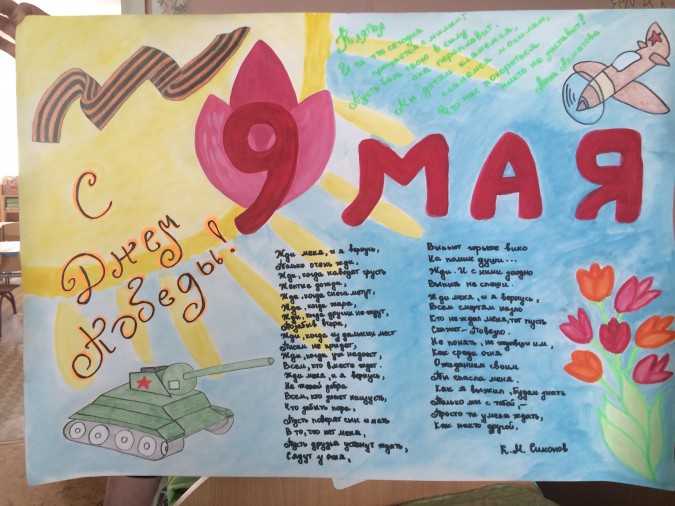 Клятва
И та, что сегодня
прощается с милым,-
Пусть боль свою в силу
она переплавит.
Мы детям клянемся,
клянемся могилам,
Что нас покориться
никто не заставит!
Анна Ахматова
9 МАЯ
С
Днем
Победы!
Жди меня, и я вернусь,
Только очень жди.
Жди, когда наводят грусть
Желтые дожди,
Жди, когда снега метут,
Жди, когда жара,
Жди, когда других не ждут,
Позабыв вчера,
Жди, когда из дальних мест
Писем не придет,
Жди, когда уж надоест
Всем, кто вместе ждет.
Жди меня, и я вернусь,
Не желай добра
Всем, кто знает наизусть,
Что забыть пора,
Пусть поверят сын и мать
В то, что нет меня,
Пусть друзья устанут ждать,
Сядут у огня,
Выпьют горькое вино
На помин души...
Жди. И с ними заодно
Выпить не спеши.
Жди меня, и я вернусь,
Всем смертям назло
Кто не ждал меня, тот пусть
Скажет:- Повезло.
Не понять, не ждавшим им,
Как среди огня
Ожиданием своим
Ты спасла меня.
Как я выжил, будем знать
Только мы с тобой,-
Просто ты умела ждать,
Как никто другой.
К.М. Симонов